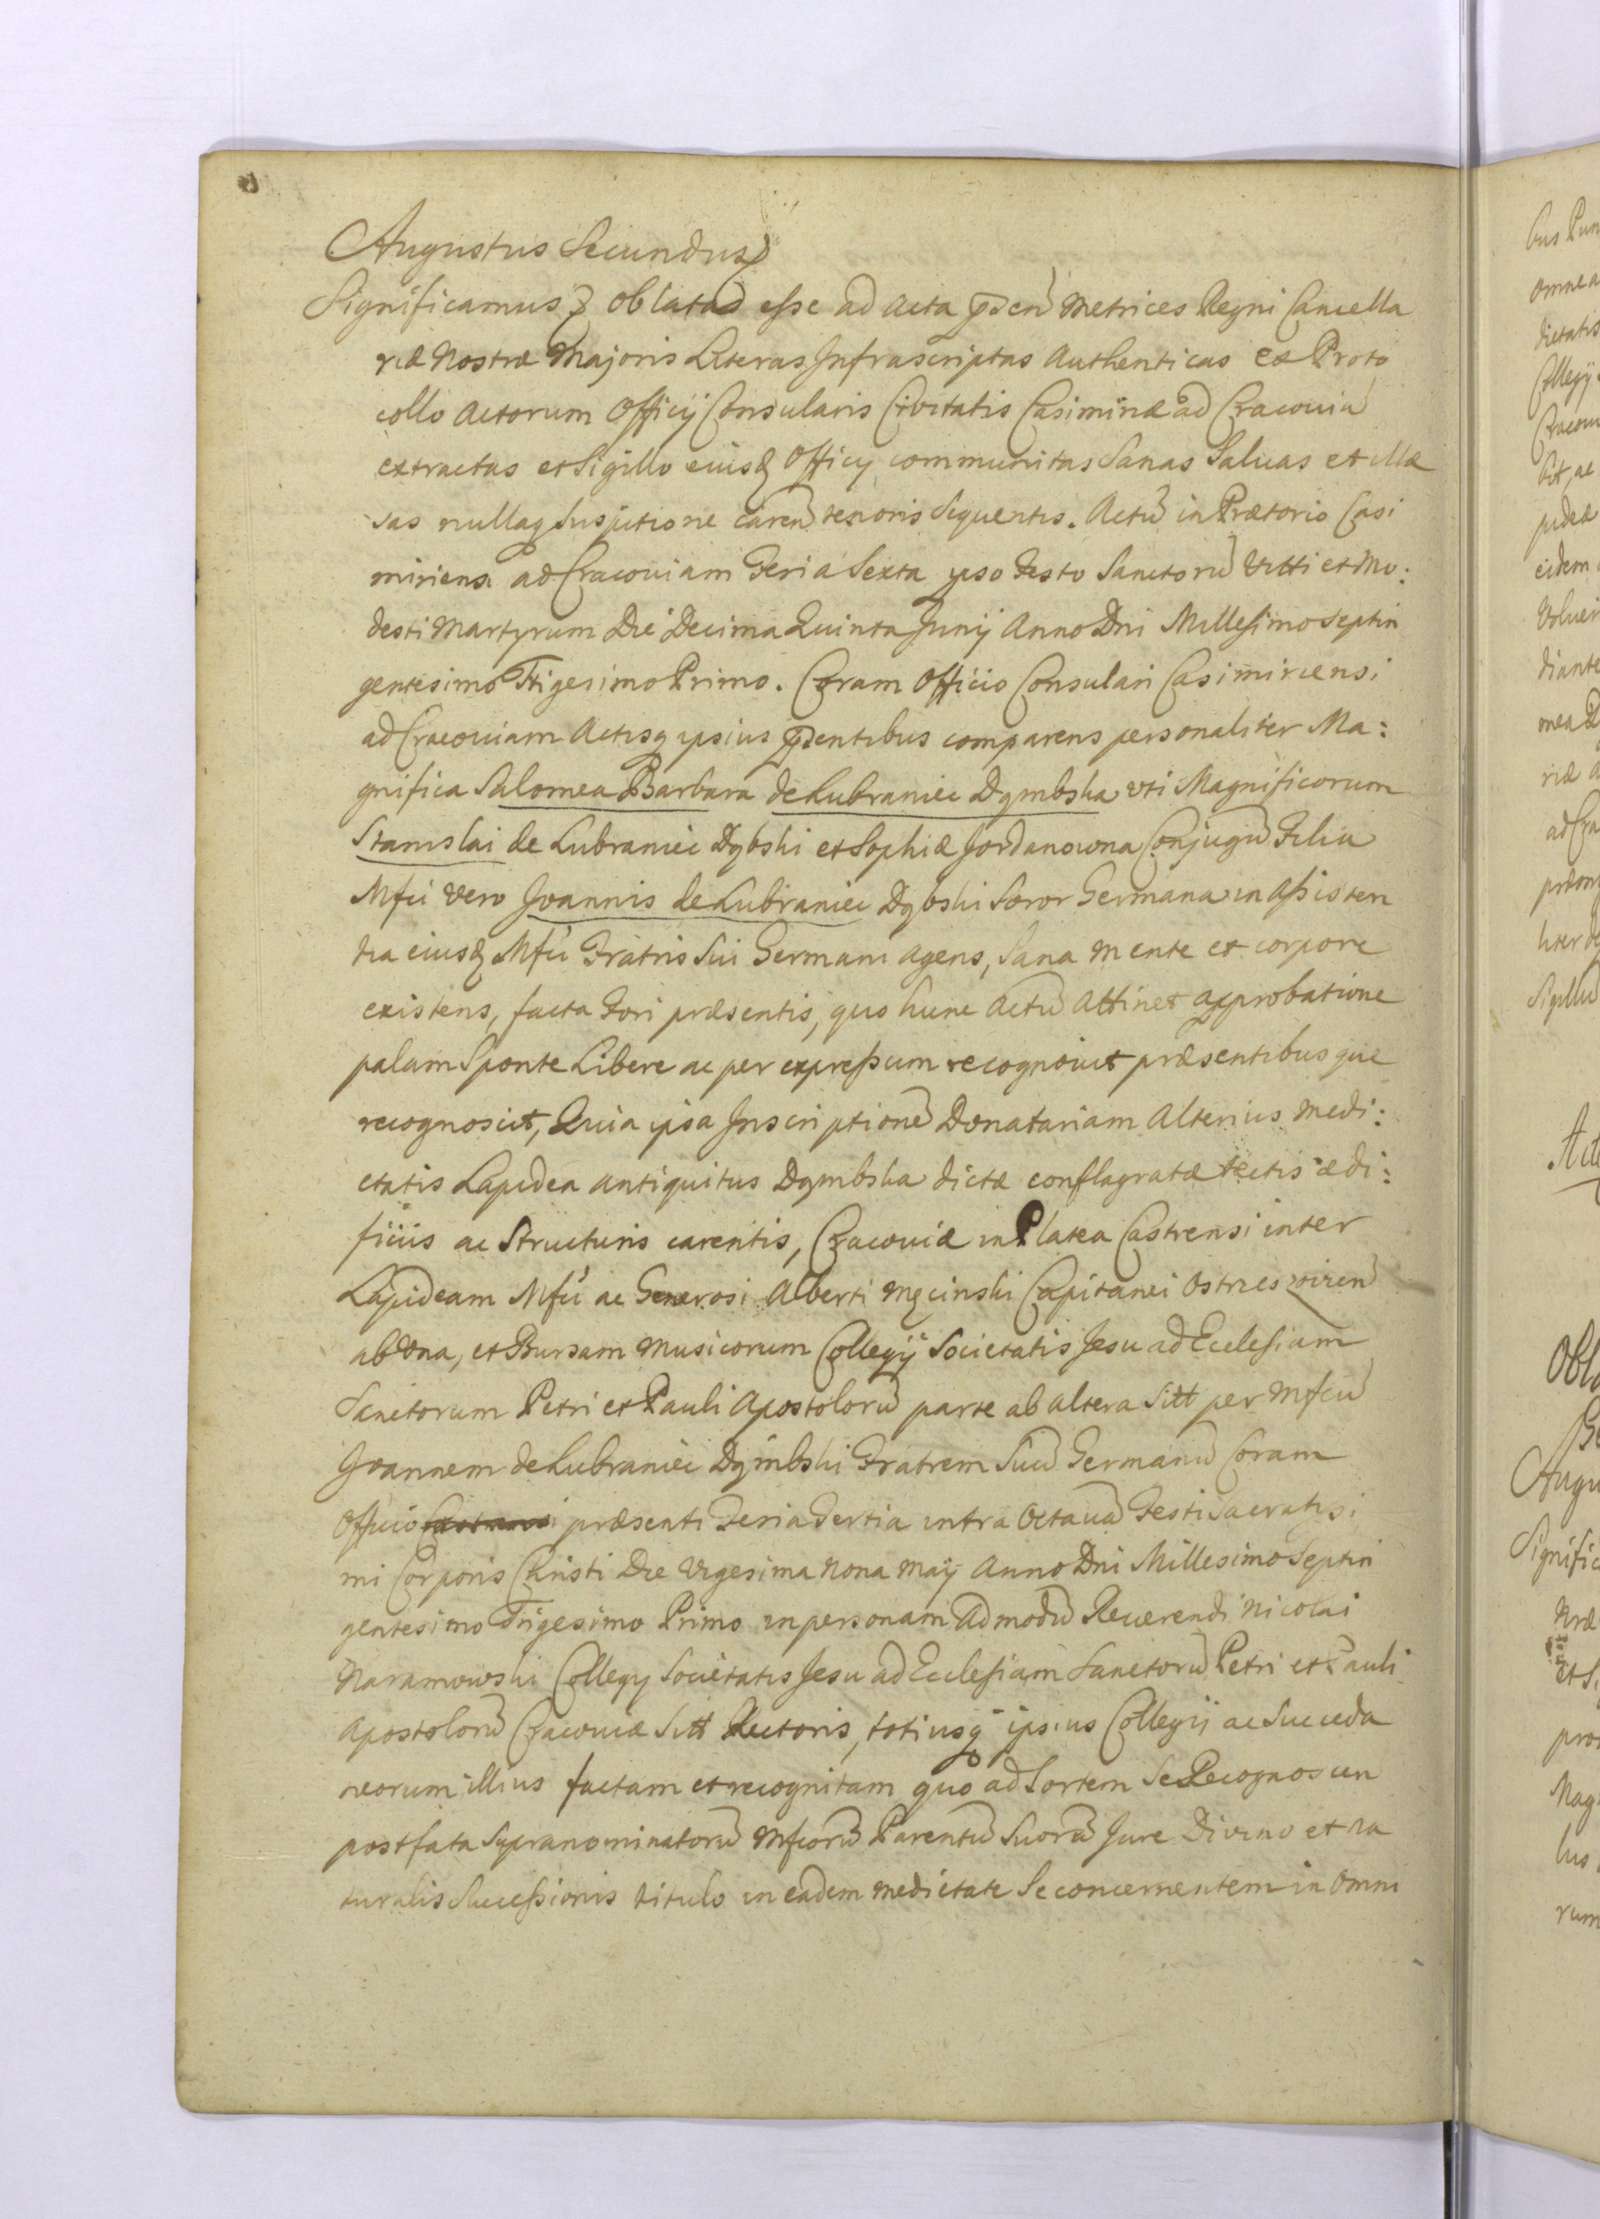 Augustus Secundus
Significamus Oblatas esse ad Acta Metrices Regni Cancella
riæ Nostræ Majoris Literas Infrascriptas Authenticas ex Proto
collo Actorum Officij Consularis Civitatis ad Cracouiã
extractas et Sigillo eiusq Officij communitas Sanas Saluas et illæ
sas nullaq Suspitione carenˀ tenoris Sequentis. Actũ in Prætorio Casi
miriensi ad Cracouiam Feria Sexta ipso Festo Sanctorũ Vitti et Mo:
desti Martyrum Die Decima Quinta Junij Anno Dni Millesimo Septin
gentesimo Trigesimo Primo. Coram Officio Consulari Casimiriensi
ad Cracouiam Actisq ipsius comparens personaliter Ma:
gnifica Salomea Barbara de Lubraniec Dąmbska uti Magnificorum
Stanislai de Lubraniec Dąbski et Sophiæ Jordanowna Conjugũ Filia
Mfci vero Joannis de Lubraniec Dąbski Soror Germana in assisten
tia eiusq Mfci Fratris Sui Germani agens, Sana mente et corpore
existens, facta Fori præsentis, quo hunc Actũ Attinet approbatione
palam Sponte Libere ac per expressum recognouit præsentibus que
recognoscit, Quia ipsa Inscriptionẽ Donatariam Alterius Medi:
etatis Lapidea antiquitus Dąmbska dictæ conflagratæ tectis ædi:
ficiis ac Structuris carentis, Cracouiæ in Platea Castrensi inter
Lapideam Mfci ac Generosi Alberti Męcinski Capitanei Ostrzeszoviensˀ
ab Una, et Bursam Musicorum Collegij Societatis Jesu ad Ecclesiam
Sanctorum Petri et Pauli Apostolorũ parte ab altera Sitt per Mfcũ
Joannem de Lubraniec Dąmbski Fratrem Suũ Germanũ Coram
Officio præsenti Feria Tertia intra Octauã Festi Sacratissi
mi Corporis Christi Die Vigesima Nona Maij Anno Dni Millesimo Septin
gentesimo Trigesimo Primo in personam Admodũ Reuerendi Nicolai
Naramowski Collegij Societatis Jesu ad Ecclesiam Sanctorũ Petri et Pauli
Apostolorũ Cracouiæ Sitt Rectoris, totiusq ipsius Collegij ac Succeda
neorum illius factam et recognitam quo ad Sortem Se Recognoscen
post fata Supranominatorũ Mfcorũ Parentũ Suorũ Jure Divino et na
turalis Successionis titulo in eadem medietate Se concernentem in Omni